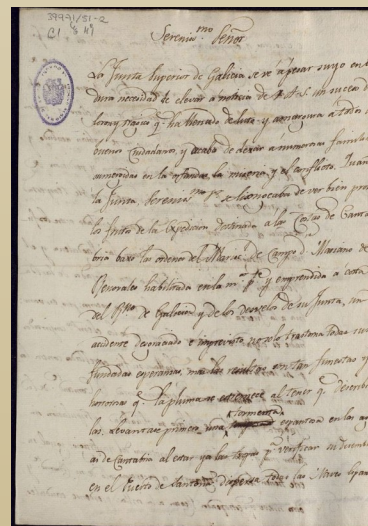 39991/51-2
C1 8 49
Serenis.mo Señor
La Junta Superior de Galicia, se vé á pesar suyo en la
dura necesidad de elevar á noticia de V.A.S. un suceso do
loroso y tragico q.e ha llenado de luto, y amargura á todos los
buenos Ciudadanos, y acaba de dexar á numerosas familias
sumergidas en la orfandad, la miseria, y el conflicto. Quando
la Junta Serenis.mo S.r se lisongeaba de ver bien pron
los frutos de la Expedicion destinada á las Costas de Canta
bria baxo las ordenes del Marisc.l de Campo D. Mariano de
Renovales habilitada en la m.r p.te y emprendida á costa
del R.no de Galicia y de los desvelos de su Junta, un
accidente desgraciado é imprevisto no solo trastorna todas sus
fundadas esperanzas, mas las resultas son tan funestas y
horrorosas q.e la pluma se estremece al tener q.e describir
las. Levantase primero una tormenta espantosa en las agu
as de Cantabria al estar ya las tropas p.a verificar su desemb
en el Puerto de Santoña: dispersa todos los Navíos Españ